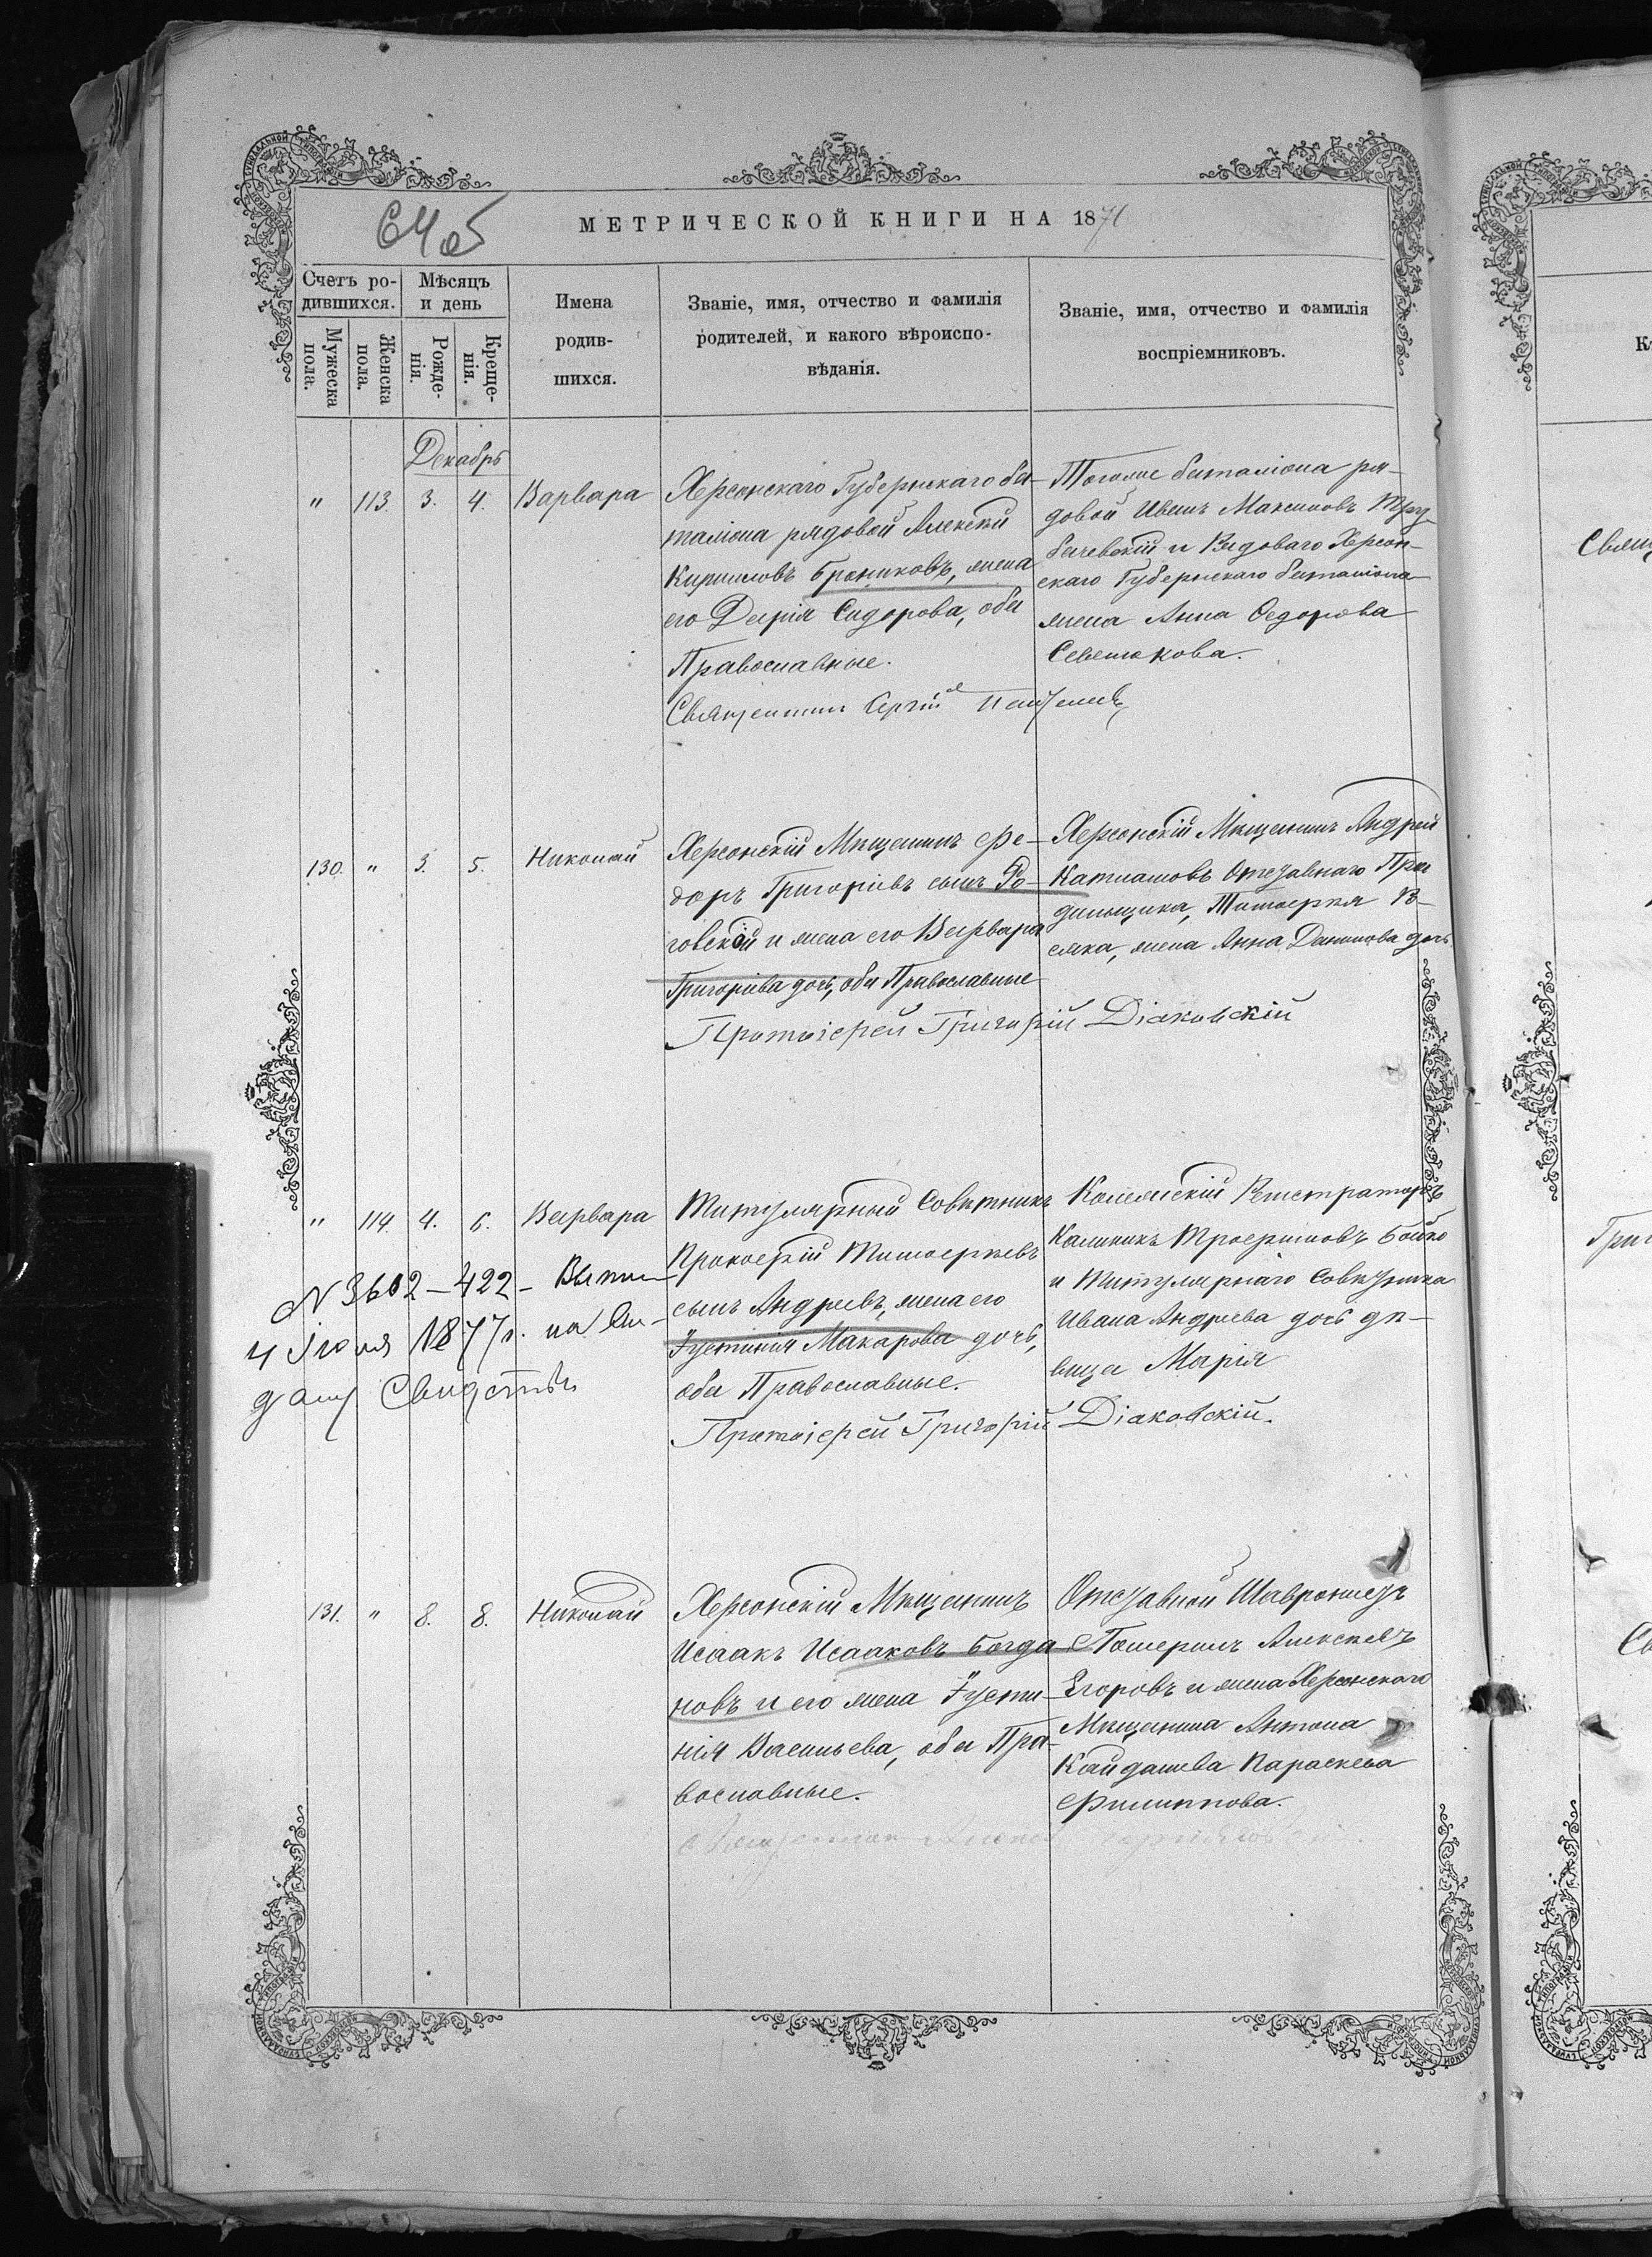 64 об
МЕТРИЧЕСКОЙ КНИГИ НА 1871
Счетъ ро-
дившихся.
Мужеска пола.
Женска пола.
Мѣсяцъ
и день
Рожде-
нія.
Креще-
нія.
Имена
родив-
шихся.
Званіе, имя, отчество и фамилія
родителей, и какого вѣроиспо-
вѣданія.
Званіе, имя, отчество и фамилія
воспріемниковъ.
Декабрь
" 113. 3. 4. Варвара
Херсонскаго Губернскаго ба-
таліона рядовой Алексѣй
Кириловъ Брониковъ, жена
его Дарія Сидорова, оба
Православные.
Священникъ Сергій
Тогоже баталіона ря-
довой Иванъ Максимовъ Тру-
бачевскій и Рядоваго Херсон-
скаго Губернскаго баталіона
жена Анна Ѳедорова
Севенюкова.
130. " 3. 5. Николай
Херсонскій Мѣщанинъ Фе-
доръ Григоріевъ сынъ Ро-
говскій и жена его Варвара
Григоріева дочь, оба Православные
Протоіерей Григорій Діаковскій
Херсонскій Мѣщанинъ Андрей
Отставнаго
Тимоѳея
жена Анна Данилова дочь
" 114. 4. 6. Варвара
N 3602-422-
4 Іюля 1877 г.
Свидет
Титулярный Совѣтникъ
Прокофій Тимофеевъ
сынъ Андреевъ, жена его
Іустинія Макарова дочь,
оба Православные.
Протоіерей Григорій Діаковскій.
Колежскій Регистраторъ
Калиникъ Трофимовъ Бойко
и Титулярнаго Совѣтника
Ивана Андреева дочь дѣ-
вица Марія
131. " 8. 8. Николай
Херсонскій Мѣщанинъ
Исаакъ Исааковъ Богда-
новъ и его жена Іусти-
нія Васильева, оба Пра-
вославные.
Священникъ
Отставной
Алексѣевъ
Егоровъ и жена Херсонскаго
Мѣщанина Антона
Кайдашева Параскева
Филиппова.